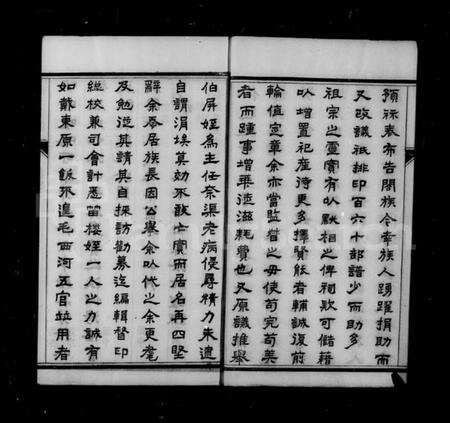 預徠表布告闔族令幸族人踴躍捐助而
又改議祗排印百六十部譜少而助多
祖宗之靈實有以默相之俾祠款可儲藉
以增置祀產待更多擇賢能者輔誠復前
輪值定章余亦當監督之毋使苟完苟美
者而踵事增華徒滋耗費也又原議推舉
伯屏姪爲主任奈渠老病侵尋精力未逮
自謂涓埃莫効不敢亡實而居名再四堅
辭余忝居族長因公舉余以代之余更耄
及勉從其請其自採訪勸募迄編輯督印
繼校兼司會計悉笛樓姪一人之力誠有
如戴東原一飯不遑毛西河五官竝用者